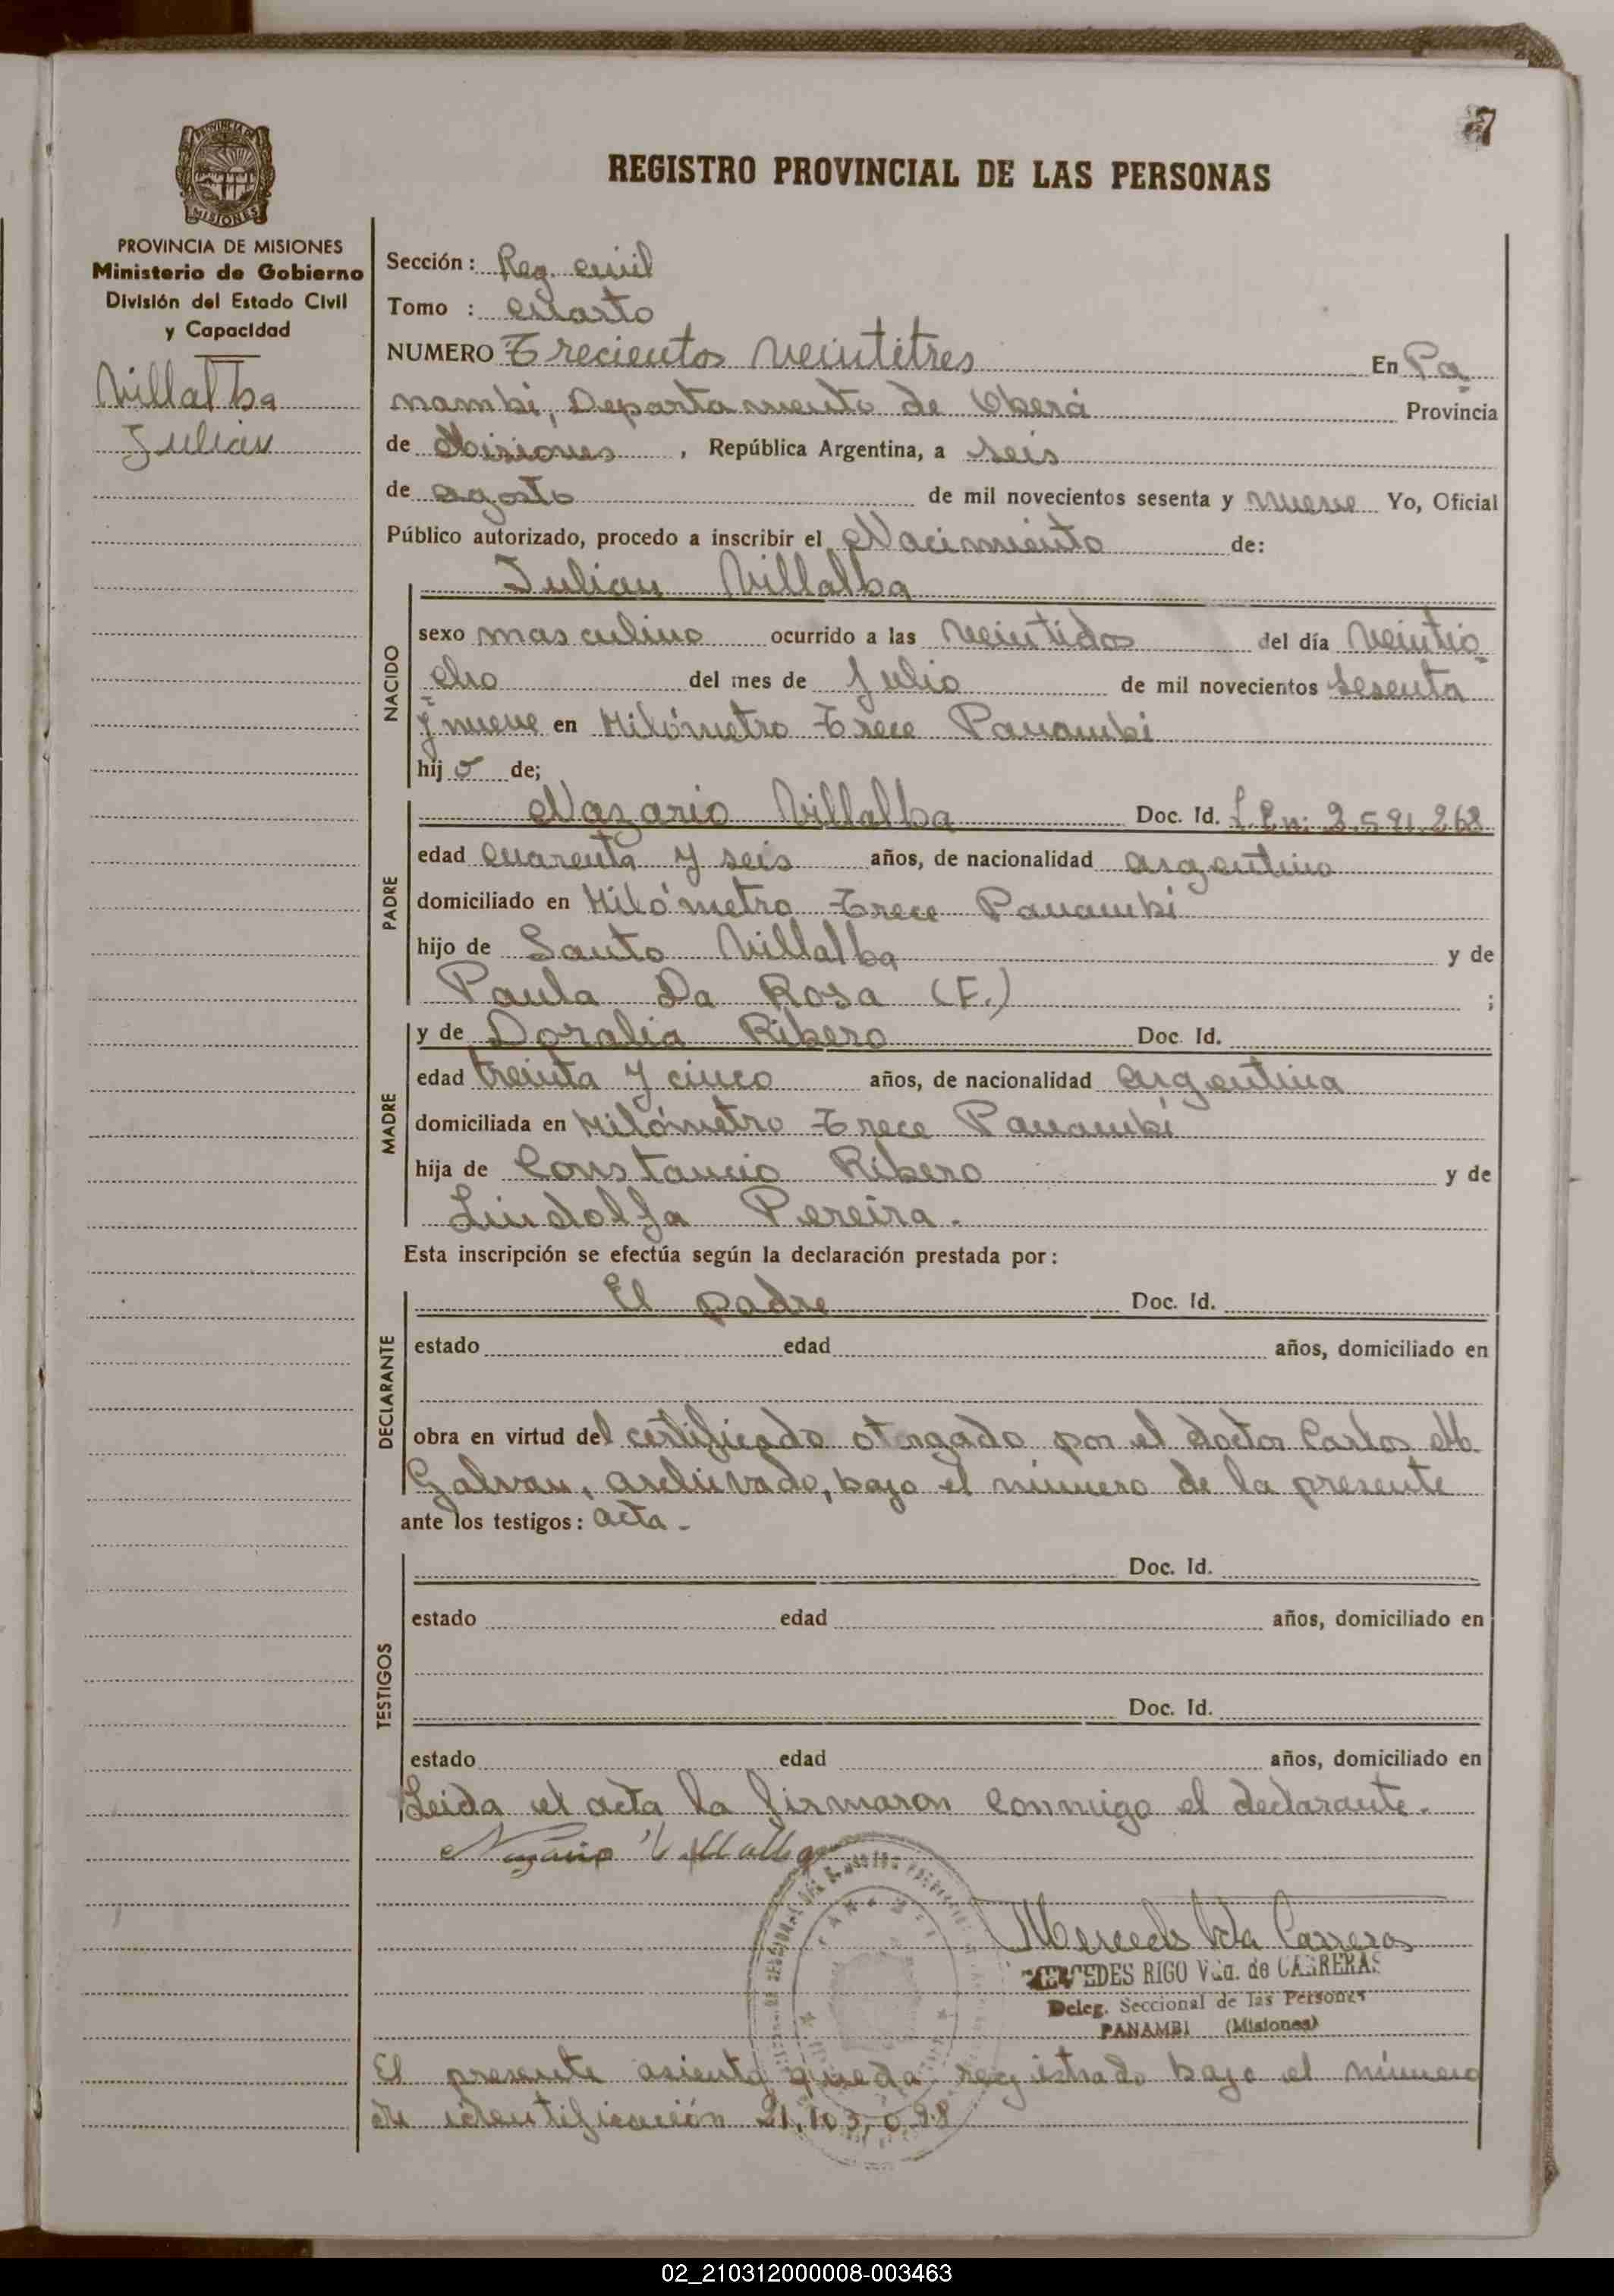 7
REGISTRO PROVINCIAL DE LAS PERSONAS
PROVINCIA DE
MISIONES
PROVINCIA DE MISIONES
Ministerio de Gobierno
División del Estado Civil
y Capacidad
Villalba
Julian
Sección: Reg. civil
Tomo : cuarto
NUMERO Trecientos veintitres En Pa
nambi, Departamento de Oberá Provincia
de Misiones , República Argentina, a seis
de agosto de mil novecientos sesenta y nueve Yo, Oficial
Público autorizado, procedo a inscribir el Nacimiento de:
Julian Villalba
NACIDO
sexo masculino ocurrido a las veintidos del día veintio
cho del mes de Julio de mil novecientos sesenta
y nueve en Kilómetro Trece Panambi
hij o de;
PADRE
Nazario Villalba Doc. Id. L.E.n: 2.591.268
edad cuarenta y seis años, de nacionalidad argentino
domiciliado en Kilómetro Trece Panambi
hijo de Santo Villalba y de
Paula Da Rosa (F.) ;
MADRE
y de Doralia Ribero Doc. Id.
edad treinta y cinco años, de nacionalidad argentina
domiciliada en Kilómetro Trece Panambi
hija de Constancio Ribero y de
Lindolfa Pereira.
Esta inscripción se efectúa según la declaración prestada por:
DECLARANTE
El padre Doc. Id.
estado edad años, domiciliado en
obra en virtud del certificado otorgado por el doctor Carlos M.
Galvan, archivado, bajo el número de la presente
ante los testigos: acta -
TESTIGOS
Doc. Id.
estado edad años, domiciliado en
Doc. Id.
estado edad años, domiciliado en
Leida el acta la firmaron conmigo el declarante.
Nazario Villalba
Mercedes Vda Carreras
MERCEDES RIGO Vda. de CARRERAS
Deleg. Seccional de las Personas
PANAMBI (Misiones)
El presente asiento queda registrado bajo el número
de identificación 21.103.098
02_210312000008-003463